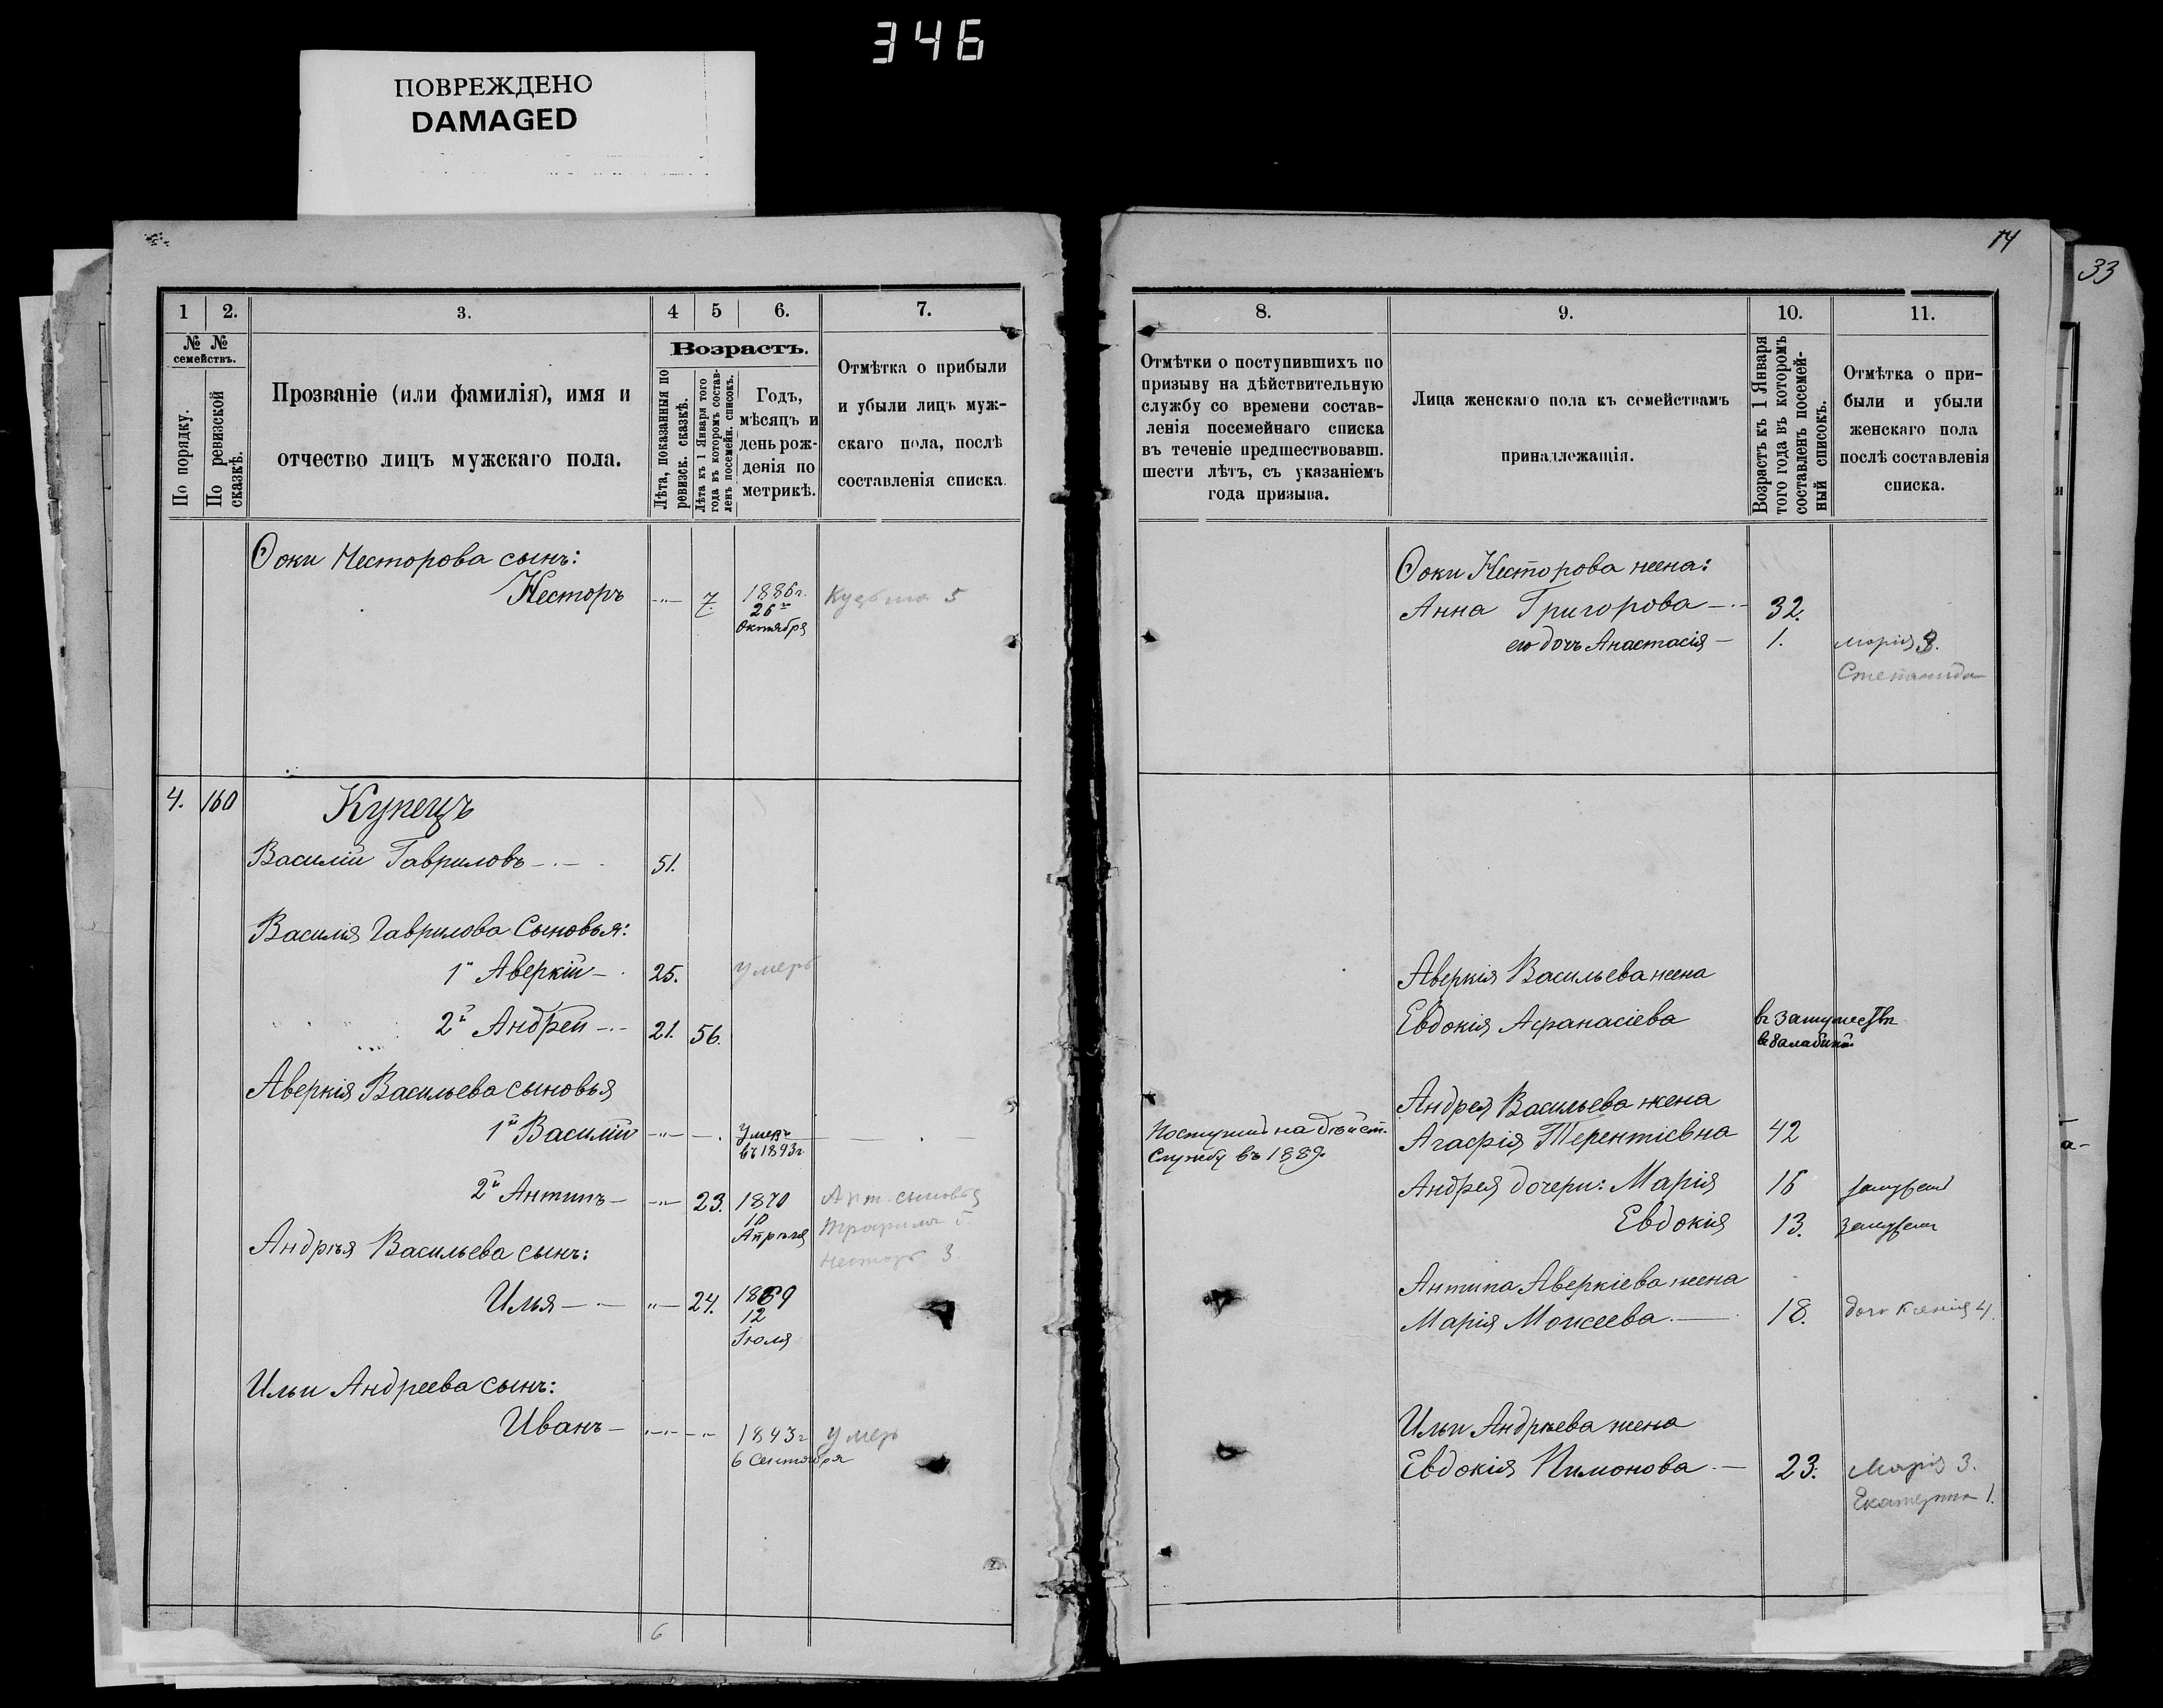 346
ПОВРЕЖДЕНО
DAMAGED
1
2.
3.
4
5
6.
7.
№ №
семействъ.
По порядку.
По ревизской сказкѣ.
Прозваніе (или фамилія), имя и
отчество лицъ мужскаго пола.
Возрастъ.
Лѣта, показанныя по ревизск. сказкѣ.
Лѣта къ 1 Января того года въ которомъ составленъ посемейн. списокъ.
Годъ,
мѣсяцъ и
день рож-
денія по
метрикѣ.
Отмѣтка о прибыли
и убыли лицъ муж-
скаго пола, послѣ
составленія списка.
Ѳоки Несторова сынъ:
Несторъ -"- 7. 1886г. Кузьма 5
26го
Октября
4. 160 Купецъ
Василій Гавриловъ 51.
Василія Гаврилова Сыновья:
1й Аверкій 25. умеръ
2й Андрей 21. 56.
Аверкія Васильева сыновья
1й Василій -"- умеръ
въ 1893г.
2й Антипъ -"- 23. 1870 Ант. сыновья
10
Апрѣля Трофимъ 5
Андрѣя Васильева сынъ: Несторъ 3.
Илья "- 24. 1869
12
Іюля
Ильи Андреева сынъ:
Иванъ 1893г умеръ
6 Сентября
6
14
33
8.
9.
10.
11.
Отмѣтки о поступившихъ по
призыву на дѣйствительную
службу со времени состав-
ленія посемейнаго списка
въ теченіе предшествовавш.
шести лѣтъ, съ указаніемъ
года призыва.
Лица женскаго пола къ семействамъ
принадлежащія.
Возрастъ къ 1 Января того года въ которомъ составленъ посемей-ный списокъ.
Отмѣтка о при-
были и убыли
женскаго пола
послѣ составленія
списка.
Ѳоки Несторова жена:
Анна Григорова 32.
его дочь Анастасія 1. Марія 8.
Степанида
Аверкія Васильева жена
Евдокія Афанасіева въ замужествѣ
Андрея Васильева жена
Поступилъ на дѣйст. Агафія Терентіевна 42
Службу въ 1889.
Андрея дочери: Марія 16 замужем
Евдокия 13. замужем
Антипа Аверкіева жена
Марія Моисеева 18. дочь Ксенія 4.
Ильи Андрѣева жена
Евдокія Пимонова 23. Марія 3.
Екатерина 1.